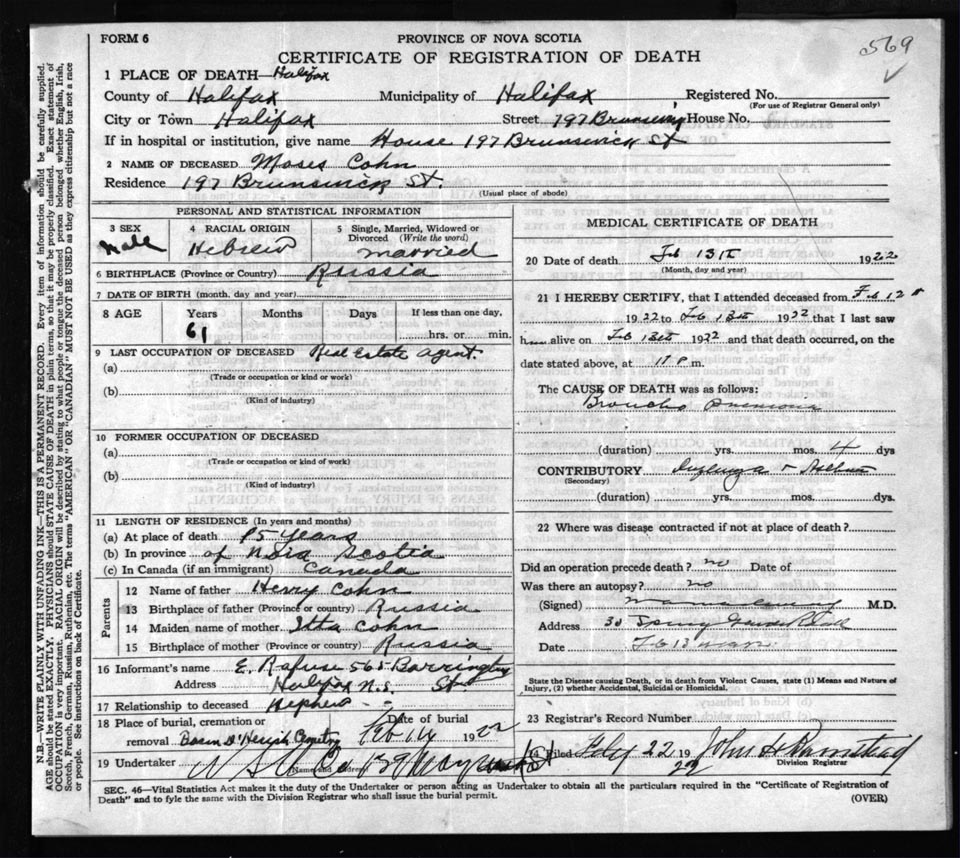 FORM 6
PROVINCE OF NOVA SCOTIA
569
CERTIFICATE OF REGISTRATION OF DEATH
1 PLACE OF DEATH—Halifax
County of Halifax Municipality of Halifax Registered No.
(For use of Registrar General only)
City or Town Halifax Street 197 Brunswick House No.
If in hospital or institution, give name House 197 Brunswick St
2 NAME OF DECEASED Moses Cohn
Residence 197 Brunswick St.
(Usual place of abode)
PERSONAL AND STATISTICAL INFORMATION
3 SEX Male
4 RACIAL ORIGIN Hebrew
5 Single, Married, Widowed or Divorced (Write the word) married
6 BIRTHPLACE (Province or Country) Russia
7 DATE OF BIRTH (month, day and year)
8 AGE Years Months Days If less than one day,
61 hrs. or min.
9 LAST OCCUPATION OF DECEASED Real Estate Agent
(a)
(Trade or occupation or kind or work)
(b)
(Kind of industry)
10 FORMER OCCUPATION OF DECEASED
(a)
(Trade or occupation or kind or work)
(b)
(Kind of industry)
11 LENGTH OF RESIDENCE (In years and months)
(a) At place of death 15 years
(b) In province of Nova Scotia
(c) In Canada (if an immigrant) Canada
Parents
12 Name of father Henry Cohn
13 Birthplace of father (Province or country) Russia
14 Maiden name of mother Itta Cohn
15 Birthplace of mother (Province or country) Russia
16 Informant's name E. Rafuse 565 Barrington
Address Halifax N.S. St
17 Relationship to deceased Nephew
18 Place of burial, cremation or Date of burial
removal Cemetry Feb 14 1922
19 Undertaker
(Name and address)
MEDICAL CERTIFICATE OF DEATH
20 Date of death Feb 13th 1922
(Month, day and year)
21 I HEREBY CERTIFY, that I attended deceased from Feb 12
1922 to Feb 13th 1922 that I last saw
h alive on Feb 13th 1922 and that death occurred, on the
date stated above, at 11 P. m.
The CAUSE OF DEATH was as follows:
Broncho Pneumonia
(duration) yrs. mos. 4 dys
CONTRIBUTORY Influenza + Asthma
(Secondary)
(duration) yrs. mos. dys.
22 Where was disease contracted if not at place of death?
Did an operation precede death? no Date of
Was there an autopsy? no
(Signed) M.D.
Address 30 Spring Garden Road
Date
State the Disease causing Death, or in death from Violent Causes, state (1) Means and Nature of
Injury, (2) whether Accidental, Suicidal or Homicidal.
23 Registrar's Record Number
24 Filed Feby 22 1922
Division Registrar
SEC. 46—Vital Statistics Act makes it the duty of the Undertaker or person acting as Undertaker to obtain all the particulars required in the "Certificate of Registration of
Death" and to fyle the same with the Division Registrar who shall issue the burial permit.
(OVER)
N.B.—WRITE PLAINLY WITH UNFADING INK—THIS IS A PERMANENT RECORD. Every item of information should be carefully supplied.
AGE should be stated EXACTLY. PHYSICIANS should STATE CAUSE OF DEATH in plain terms, so that it may be properly classified. Exact statement of
OCCUPATION is very important. RACIAL ORIGIN will be described by stating to what people or tongue the deceased person belonged whether English, Irish,
Scotch, French, German, Russian, Ruthenian, etc. The terms "AMERICAN" OR "CANADIAN" MUST NOT BE USED as they express citizenship but not a race
or people. See instructions on back of Certificate.